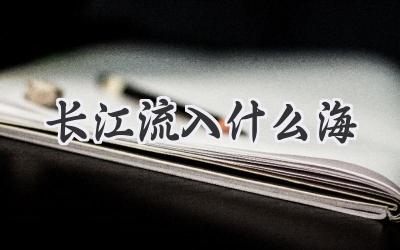 长江流入什么海